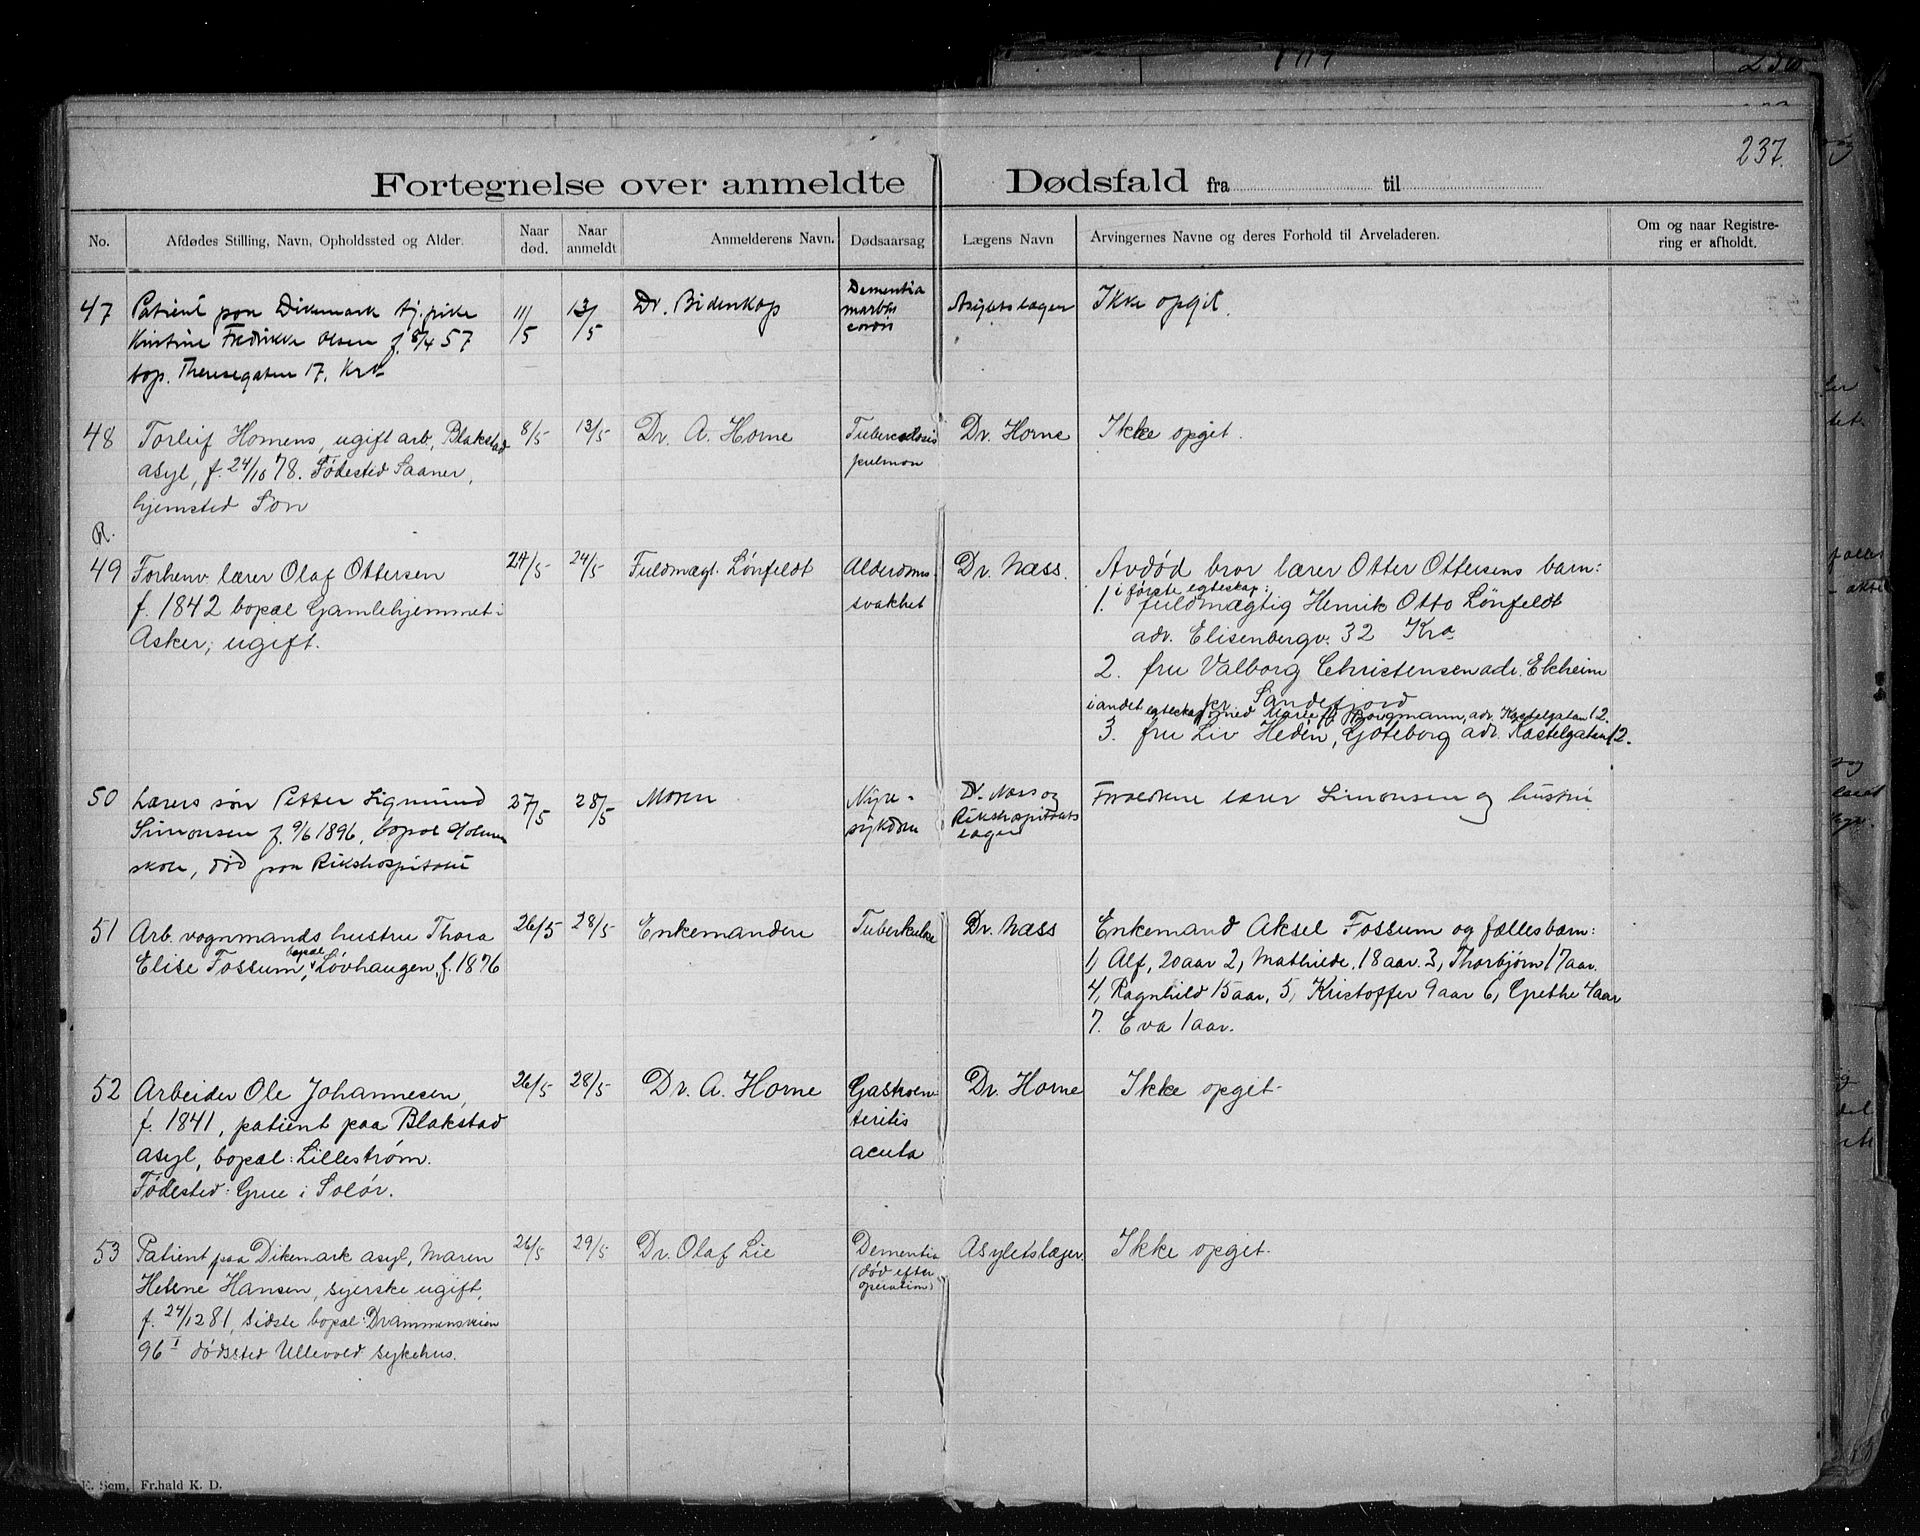 237.
Fortegnelse over anmeldte Dødsfald fra til
No. Afdødes Stilling, Navn, Opholdssted og Alder. Naar død. Naar anmeldt Anmelderens Navn. Dødsaarsag Lægens Navn Arvingernes Navne og deres Forhold til Arveladeren. Om og naar Registre-
ring er afholdt.
47 Patient paa Dikemark tj. pike 11/5 13/5 Dr. Bidenkap Dementia Asylets læger Ikke opgit.
Kristine Fredrikke Olsen f. 8/4 57 marbus
bop. Theresegaten 17, Kra cordis
48 Torleif Homens, ugift arb, Blakstad 8/5 13/5 Dr. A. Horne Tuberculosis Dr. Horne Ikke opget.
asyl, f. 24/10 78. Fødested Saaner, pulmon
hjemsted Son
R.
49 Forhenv. lærer Olaf Ottersen 24/5 24/5 Fuldmægt. Lønfeldt Alderdoms- Dr. Næss. Avdød bror lærer Otter Ottersens barn:
i første egteskap:
f. 1842 bopæl Gamlehjemmet i svakhet 1. fuldmægtig Henrik Otto Lønfeldt
Asker, ugift. adr. Elisenbergv. 32 Kra
2. fru Valborg Christensen adr. Ekheim
pr Sandefjord
i andet egteskap med Marie f. Borgmann, adr. Kastelgatan 12.
3. fru Liv Hedén, Göteborg adr. Kastelgatan 12.
50 Lærers søn Petter Sigmund 27/5 28/5 Moren Nyre- Dr. Næss og Forældrene lærer Simonsen og hustru
Simonsen f. 9/6 1896, bopæl Holmen sykdom Rikshospitalets
skole, død paa Rikshospitalet læger
51 Arb. vognmands hustru Thora 26/5 28/5 Enkemanden Tuberkulose Dr. Næss Enkemand Aksel Fossum og fællesbarn:
Elise Fossum, bopæl Løvhaugen, f. 1876 1, Alf, 20 aar 2, Mathilde, 18 aar. 3, Thorbjørn 17 aar.
4, Ragnhild 15 aar, 5, Kristoffer 9 aar 6, Grethe 4 aar
7. Eva 1 aar.
52 Arbeider Ole Johannesen, 26/5 28/5 Dr. A. Horne Gastroen- Dr. Horne Ikke opget.
f. 1841, patient paa Blakstad teritis
asyl, bopæl: Lillestrøm. acuta
Fødested: Grue i Solør.
53 Patient paa Dikemark asyl, Maren 26/5 29/5 Dr. Olaf Lie Dementia Asylets læger. Ikke opget.
Helene Hansen, syerske ugift, (død efter
f. 24/12 81, sidste bopæl: Drammensveien operation)
96 I dødssted Ullevold sykehus.
E. Sem, Fr.hald K. D.